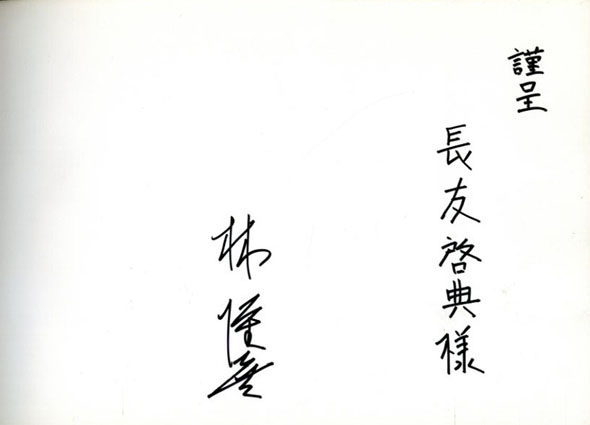 謹呈
長友啓典様
林隆喜